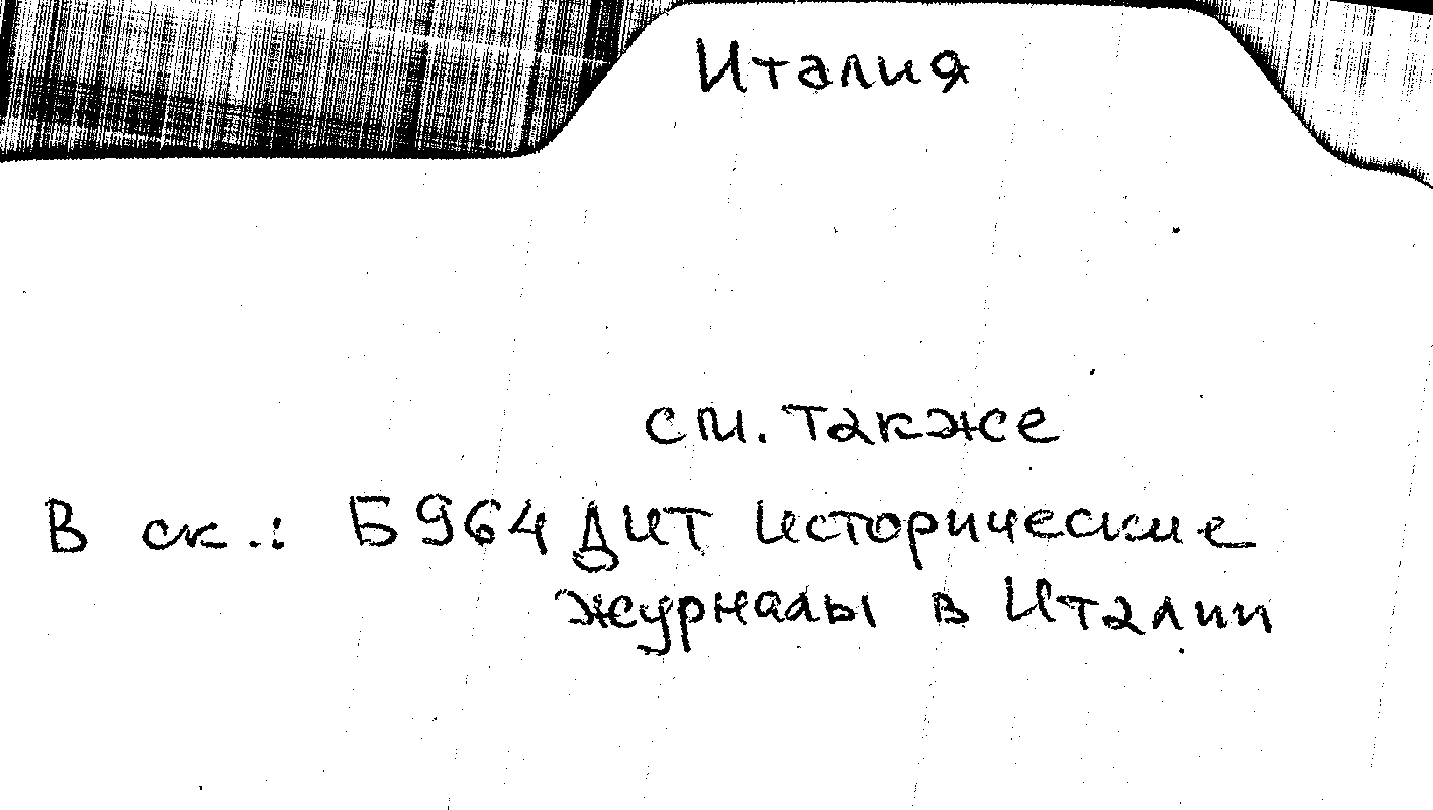 Италия
см. также
В ск.: Б964 ДИТ Исторические
журналы в Италии